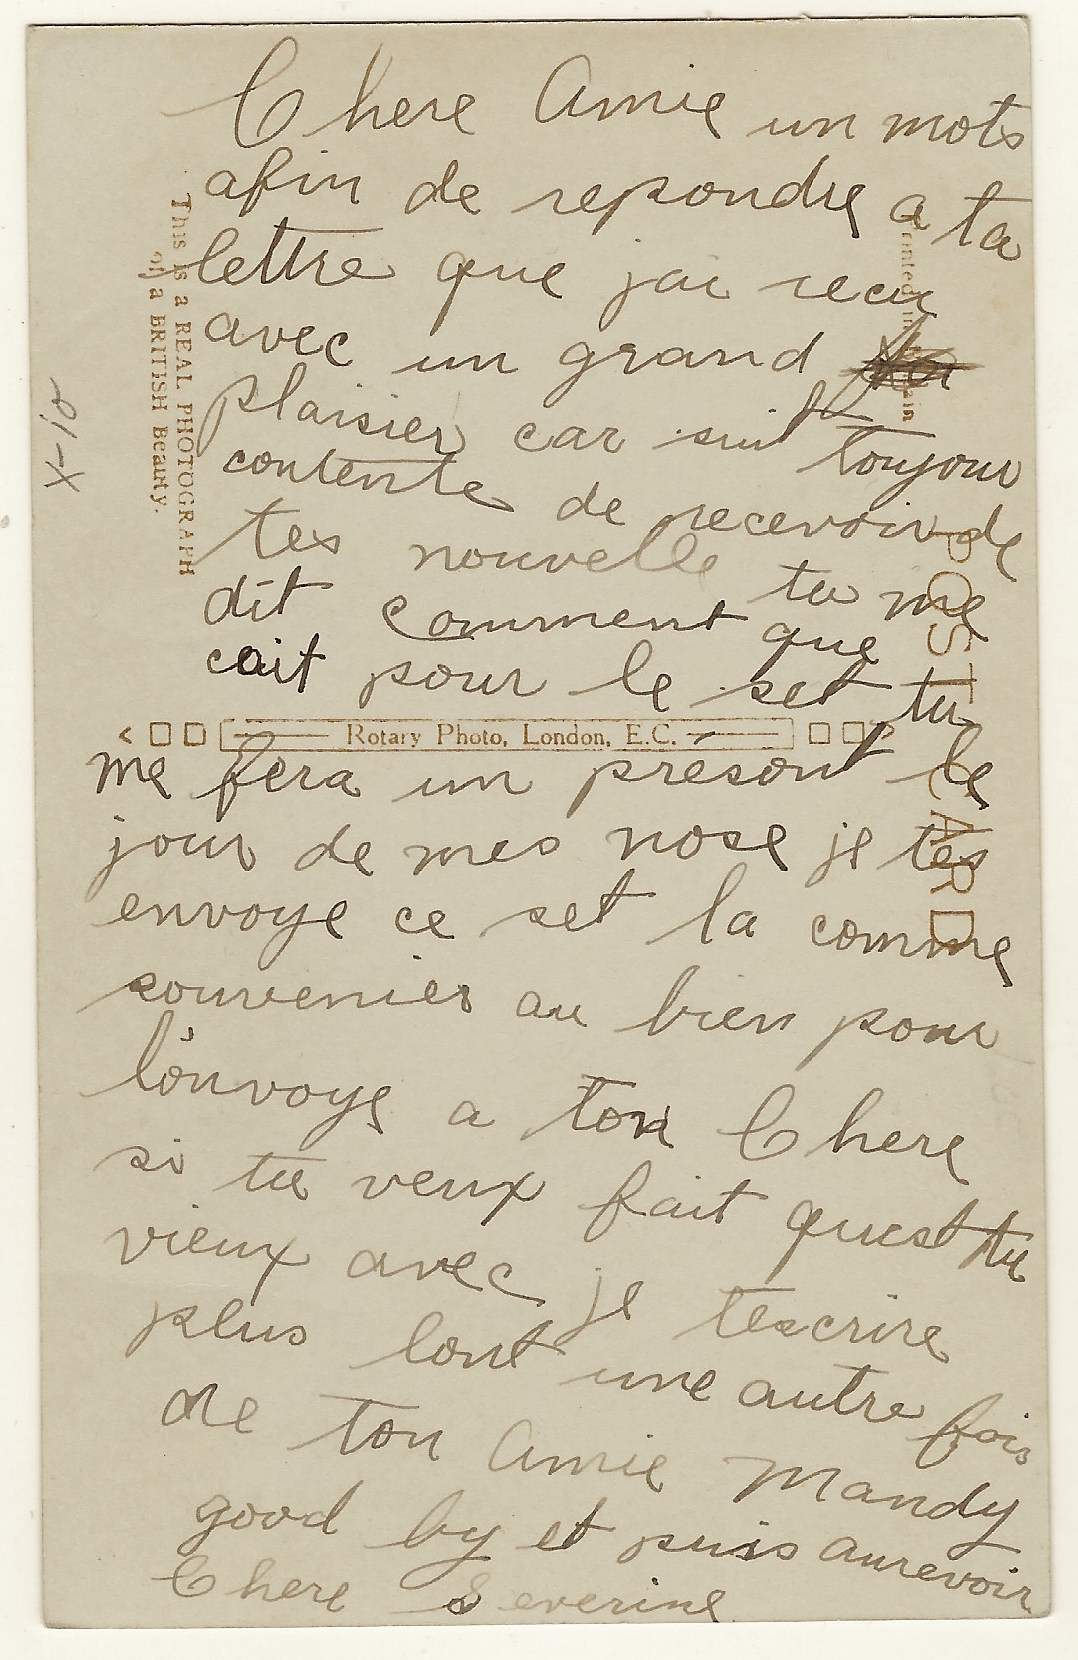 Chere Amie un mots
afin de repondre a ta
lettre que jai recu
avec un grand
plaisier car suit toujour
contente de recevoir de
tes nouvelle tu me
dit comment que
cait pour le set tu
me fera un present le
jour de mes nose je tes
envoye ce set la comme
souvenier au bien pour
l'onvoye a ton Chere
si tu veux fait quest tu
vieux avec je tescrire
plus lont une autre fois
de ton Amie Mandy
good by et puis aurevoir
Chere Severine
This is a REAL PHOTOGRAPH
of a BRITISH Beauty.
X-10
Rotary Photo, London, E.C.
POST CARD